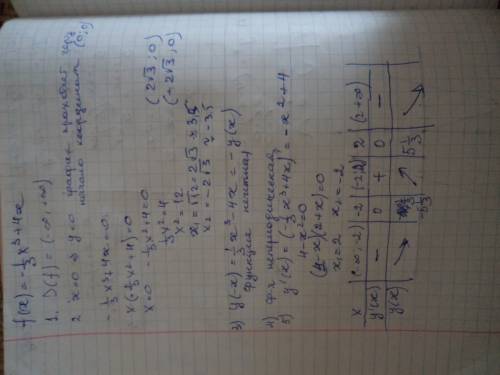 f(x) = -1/3 x³ + 4x
1. D(f) = (-∞; +∞)
2 x=0 ⇒ y=0 график проходит через
начало координат (0; 0)
-1/3 x³ + 4x = 0
x(-1/3 x² + 4) = 0
x=0 -1/3 x² + 4 = 0
1/3 x² = 4
x² = 12
x₁ = √12 = 2√3 ≈ 3,5 (2√3; 0)
x₂ = -2√3 ≈ -3,5 (-2√3; 0)
3) y(-x) = 1/3 x³ - 4x = -y(x)
функция нечетная
4) Ф-я непериодическая
5) y'(x) = (-1/3 x³ + 4x)' = -x² + 4
4 - x² = 0
(2-x)(2+x) = 0
x₁ = 2 x₂ = -2
x (-∞; -2) -2 (-2;2) 2 (2;+∞)
y'(x) - 0 + 0 -
y(x) ↘ -5 1/3 ↗ 5 1/3 ↘